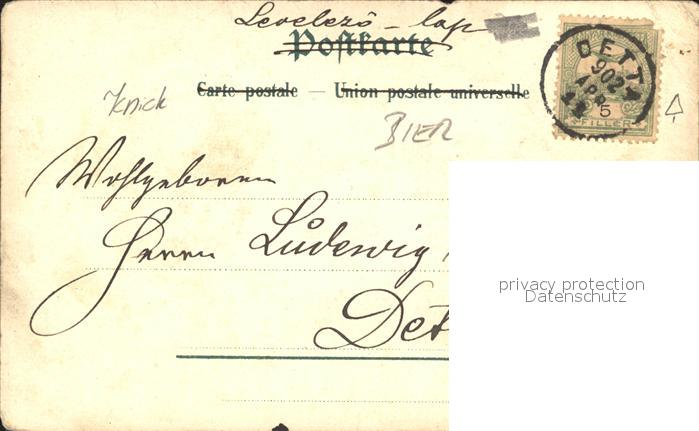 Levelező-lap
Postkarte
Carte postale — Union postale universelle
Knick
BIER
DETTA
902
APR
5
FILLER
Wohlgeboren
Herrn Ludewig
Det
privacy protection
Datenschutz